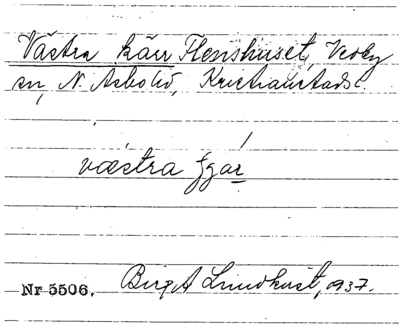 Västra kärr Flenshuset, Verby
sn, N. Asbo hd, Kristianstads l.
væstra
Nr 5506. Birgit Lundkvist, 1937.